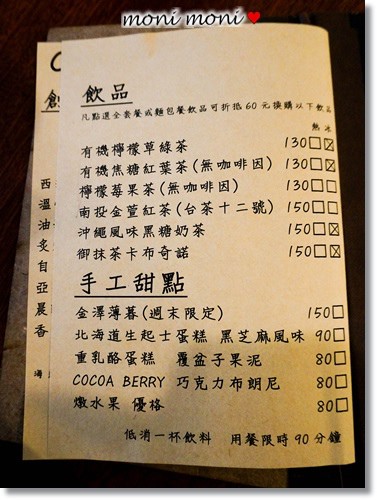 moni moni
飲品
凡點選全套餐或麵包餐飲品可折抵60元換購以下飲品
熱 冰
有機檸檬草綠茶 130□☒
有機焦糖紅葉茶(無咖啡因) 130□☒
檸檬莓果茶(無咖啡因) 130□□
南投金萱紅茶(台茶十二號) 150□□
沖繩風味黑糖奶茶 150□☒
御抹茶卡布奇諾 150□☒
手工甜點
金澤薄暮(週末限定) 150□
北海道生起士蛋糕 黑芝麻風味 90□
重乳酪蛋糕 覆盆子果泥 80□
COCOA BERRY 巧克力布朗尼 80□
燉水果 優格 80□
低消一杯飲料 用餐限時90分鐘
西
溫
油
炙
自
亞
晨
香
海